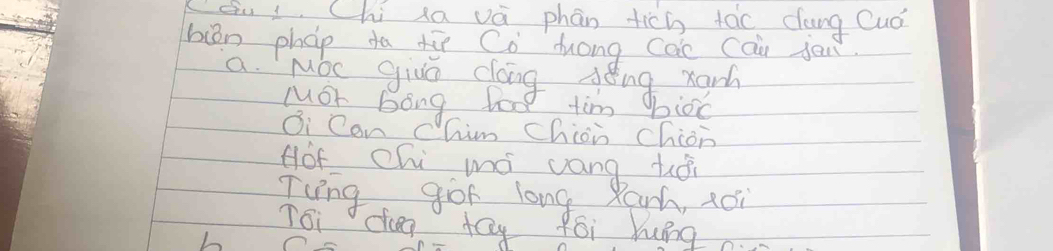 Câu 1. Chỉ ra và phân tích tác dụng của
biện pháp tu từ có trong các câu sau.
a. Mọc giữa dòng sông xanh
Một bông hoa tím biếc
Ơi con chim chiền chiện
Hót chi mà vang trời
Từng giọt long lanh rơi
Tôi đưa tay tôi hứng
b.